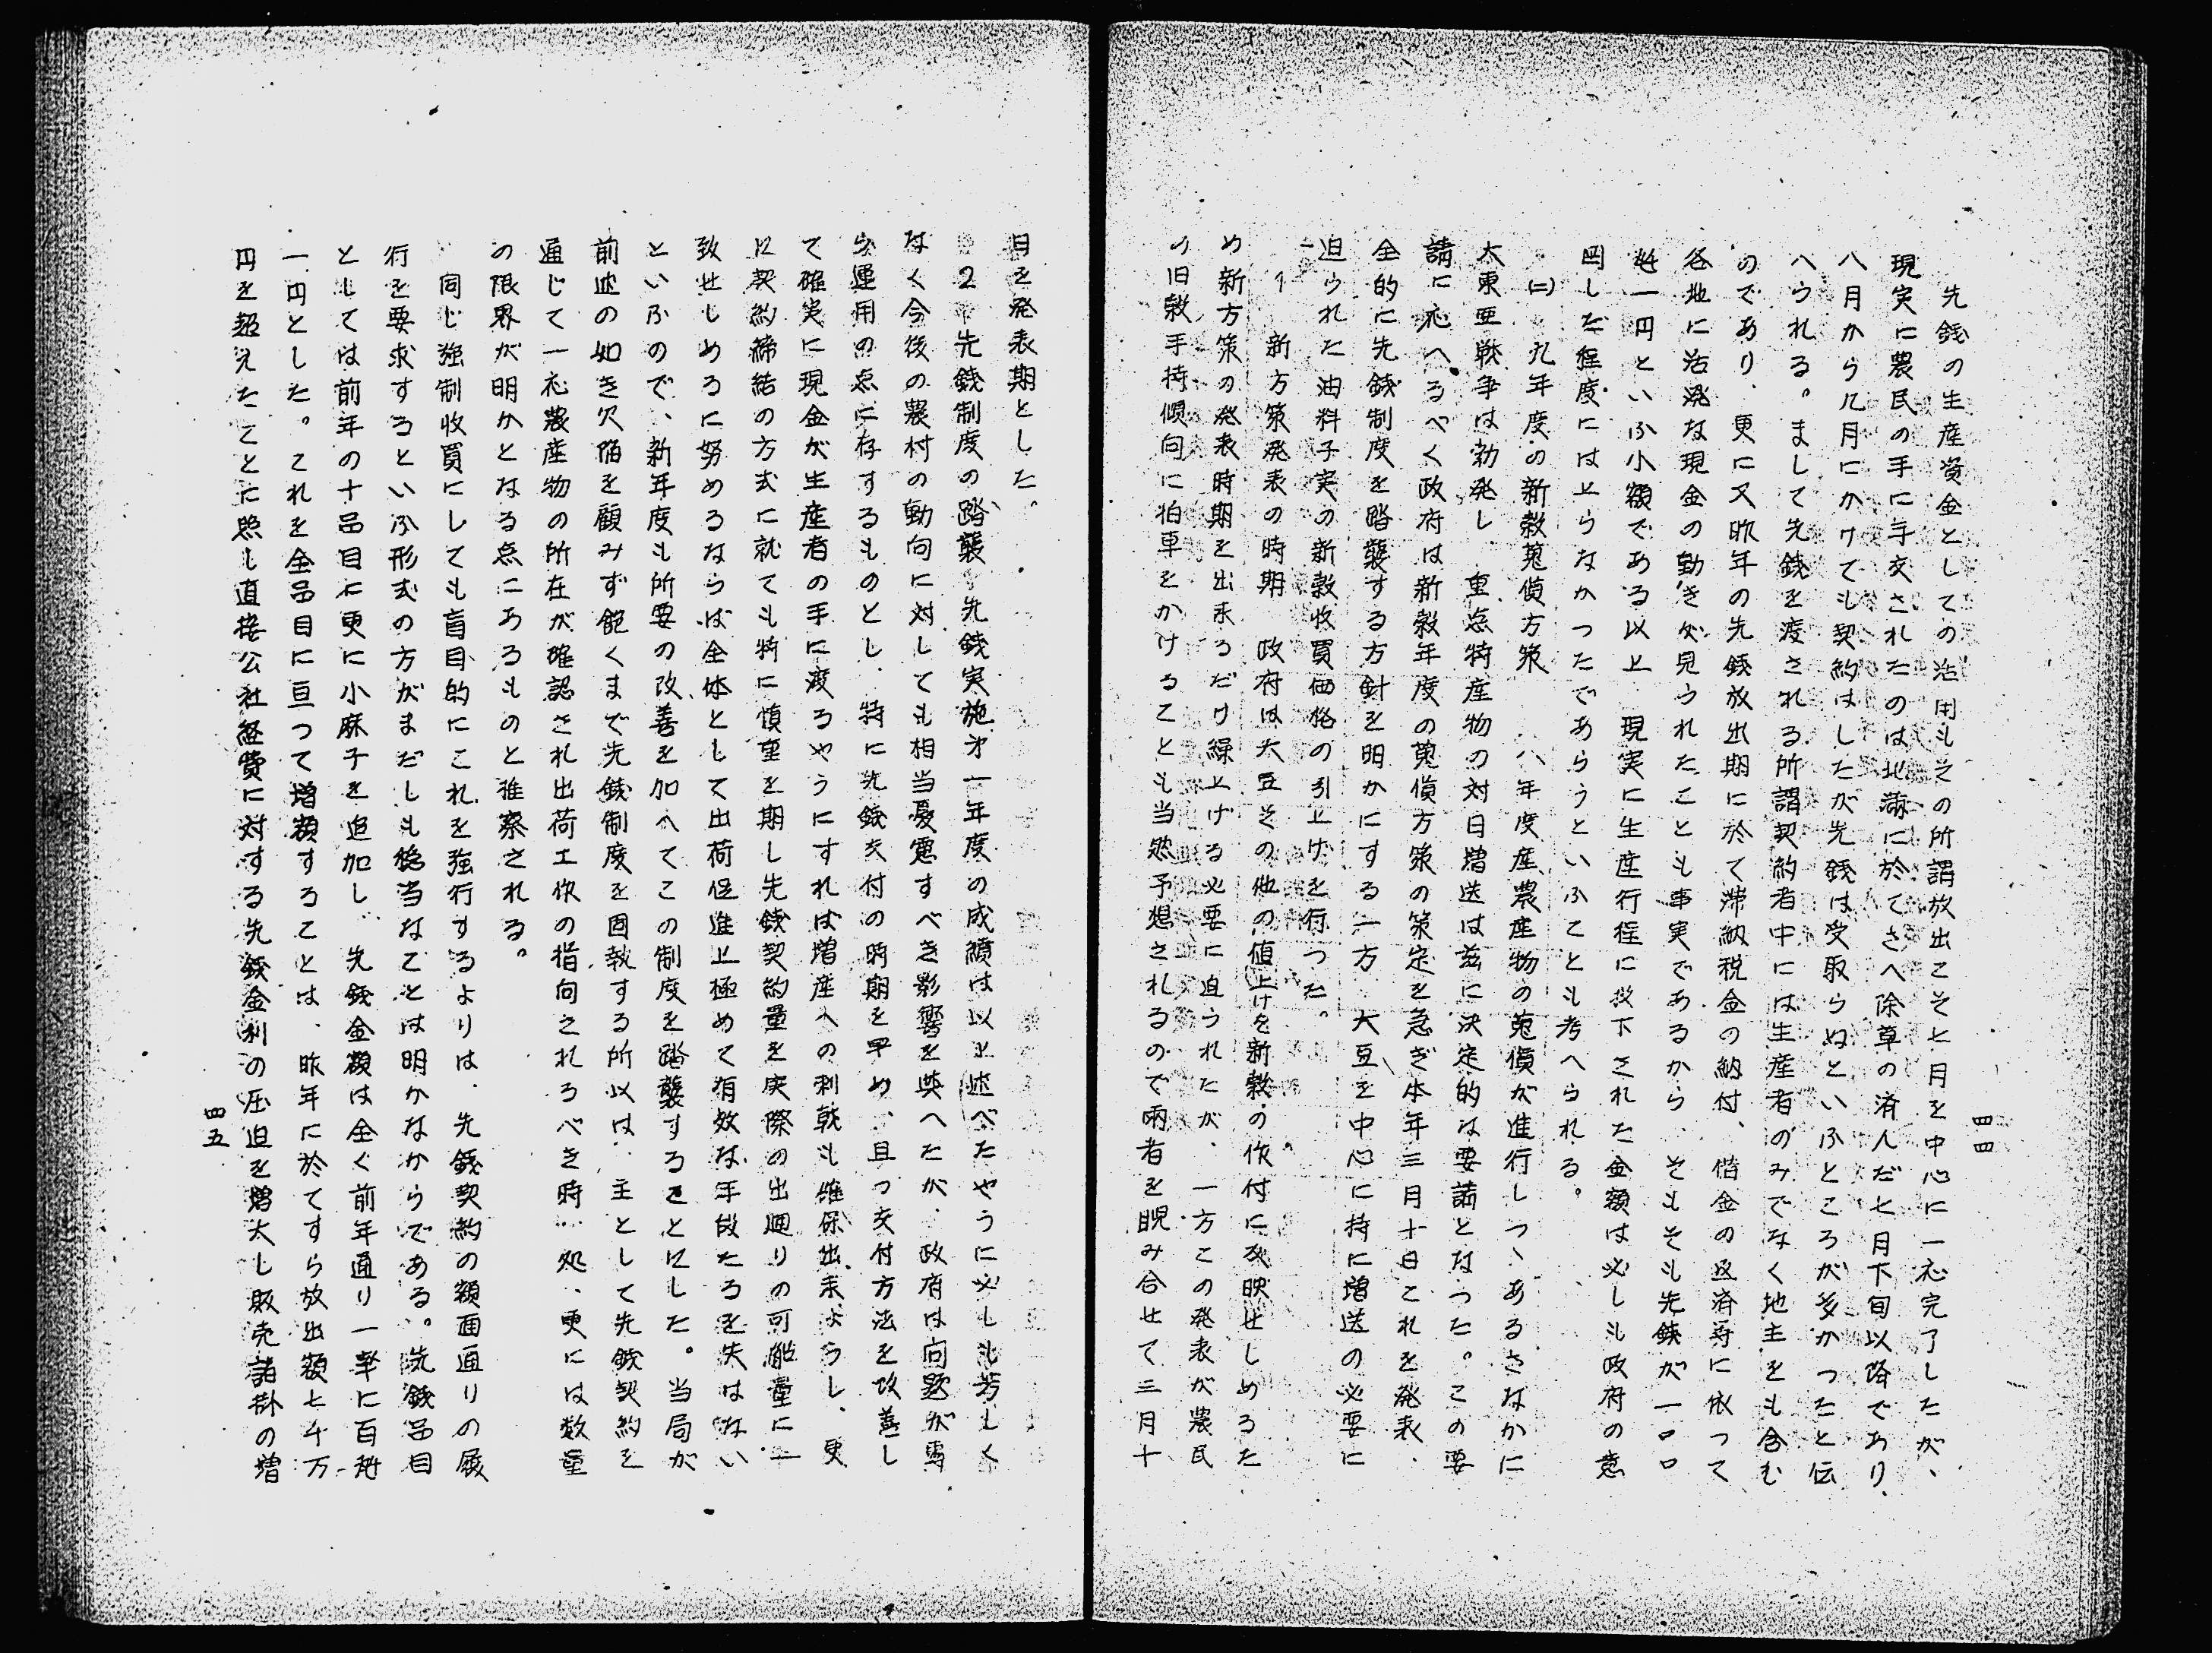 四四
先銭の生産資金としての活用もその所謂放出こそ七月を中心に一応完了したが、
現実に農民の手に手交されたのは北満に於てさへ除草の済んだ七月下旬以降であり、
八月から九月にかけても契約はしたが先銭は受取らぬといふところが多かつたと伝
へられる。まして先銭を渡される所謂契約者中には生産者のみでなく地主をも含む
のであり、更に又昨年の先銭放出期に於て滞納税金の納付、借金の返済等に依つて
各地に活溌な現金の動きが見られたことも事実であるから、そもそも先銭が一〇〇
瓩一円といふ小額である以上 現実に生産行程に投下された金額は必しも政府の意
図した程度には上らなかつたであらうといふことも考へられる。
(二) 九年度の新穀蒐償方策 八年度産農産物の蒐償が進行しつゝあるさなかに
大東亜戦争は勃発し 重点特産物の対日増送は茲に決定的な要請となつた。この要
請に応へるべく政府は新穀年度の蒐償方策の策定を急ぎ本年三月十日これを発表、
全的に先銭制度を踏襲する方針を明かにする一方 大豆を中心に特に増送の必要に
迫られた油料子実の新穀收買価格の引上げを行つた。
1 新方策発表の時期 政府は大豆その他の値上げを新穀の作付に反映せしめるた
め新方策の発表時期を出来るだけ繰上げる必要に迫られたが、一方この発表が農民
の旧穀手持傾向に拍車をかけることも当然予想されるので両者を睨み合せて三月十
日を発表期とした。
2 先銭制度の踏襲 先銭実施才一年度の成績は以上述べたやうに必しも芳しく
なく今後の農村の動向に対しても相当憂慮すべき影響を与へたが、政府は問題が専
ら運用の点に存するものとし、特に先銭交付の時期を早め、且つ交付方法を改善し
て確実に現金が生産者の手に渡るやうにすれば増産への刺戟も確保出来ようし、更
に契約締結の方式に就ても特に慎重を期し先銭契約量を実際の出廻りの可能量に一
致せしめるに努めるならば全体として出荷促進上極めて有効な手段たるを失はない
といふので、新年度も所要の改善を加へてこの制度を踏襲することにした。当局が
前述の如き欠陥を顧みず飽くまで先銭制度を固執する所以は、主として先銭契約を
通じて一応農産物の所在が確認され出荷工作の指向されるべき時、処、更には数量
の限界が明かとなる点にあるものと推察される。
同じ強制收買にしても盲目的にこれを強行するよりは、先銭契約の額面通りの履
行を要求するといふ形式の方がまだしも穏当なことは明かなからである。先銭品目
としては前年の十品目に更に小麻子を追加し、先銭金額は全く前年通り一率に百瓩
一円とした。これを全品目に亘つて増額することは、昨年に於てすら放出額七千万
円を超えたことに照し直接公社経費に対する先銭金利の圧迫を増大し販売諸掛の増
四五